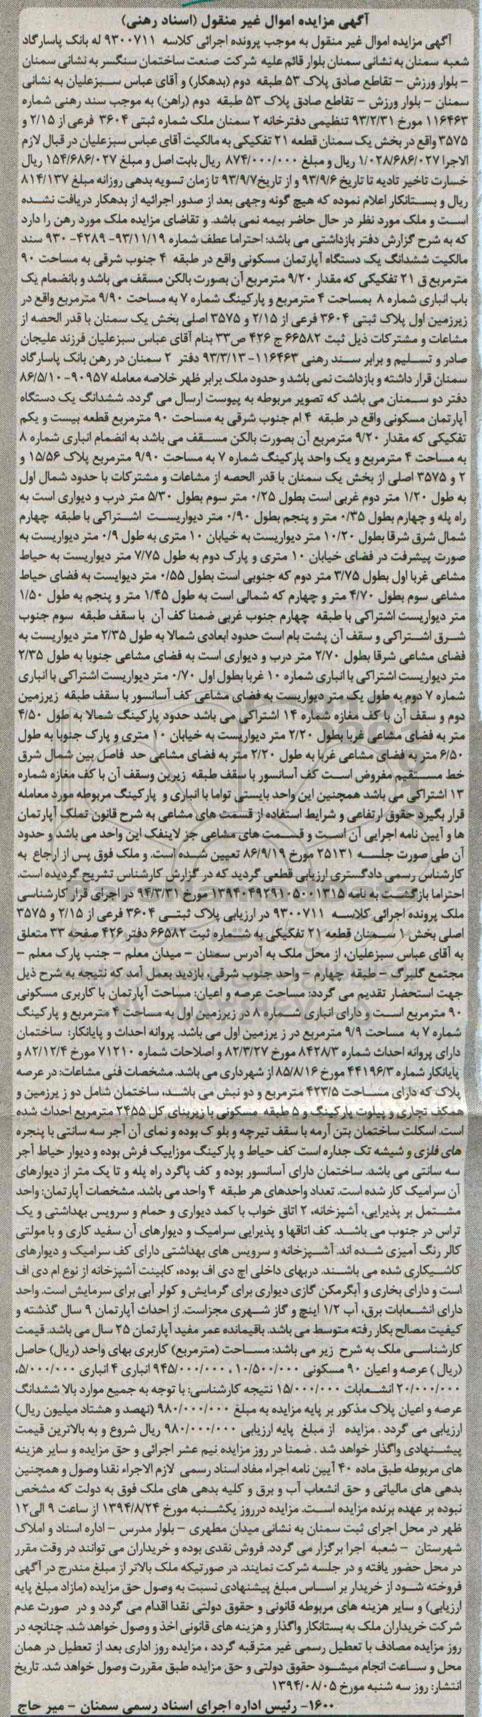 آگهی مزایده اموال غیر منقول (اسناد رهنی)
آگهی مزایده اموال غیر منقول به موجب پرونده اجرائی کلاسه ۹۳۰۰۷۱۱ له بانک پاسارگاد
شعبه سمنان به نشانی سمنان بلوار قائم علیه شرکت صنعت ساختمان سنگسر به نشانی سمنان
- بلوار ورزش - تقاطع صادق پلاک ۵۳ طبقه دوم (بدهکار) و آقای عباس سبزعلیان به نشانی
سمنان - بلوار ورزش - تقاطع صادق پلاک ۵۳ طبقه دوم (راهن) به موجب سند رهنی شماره
۱۱۶۴۶۳ مورخ ۹۳/۲/۳۱ تنظیمی دفترخانه ۲ سمنان ملک شماره ثبتی ۳۶۰۴ فرعی از ۲/۱۵ و
۳۵۷۵ واقع در بخش یک سمنان قطعه ۲۱ تفکیکی به مالکیت آقای عباس سبزعلیان در قبال لازم
الاجرا ۱/۰۲۸/۶۸۶/۰۲۷ ریال و مبلغ ۸۷۴/۰۰۰/۰۰۰ ریال بابت اصل و مبلغ ۱۵۴/۶۸۶/۰۲۷ ریال
خسارت تاخیر تادیه تا تاریخ ۹۳/۹/۶ و از تاریخ ۹۳/۹/۷ تا زمان تسویه بدهی روزانه مبلغ ۸۱۴/۱۳۷
ریال و بستانکار اعلام نموده که هیچ گونه وجهی بعد از صدور اجرائیه از بدهکار دریافت نشده
است و ملک مورد نظر در حال حاضر بیمه نمی باشد. و تقاضای مزایده ملک مورد رهن را دارد
که به شرح گزارش دفتر بازداشتی می باشد: احتراما عطف شماره ۹۳/۱۱/۱۹- ۴۲۸۹- ۹۳۰ سند
مالکیت ششدانگ یک دستگاه آپارتمان مسکونی واقع در طبقه ۴ جنوب شرقی به مساحت ۹۰
مترمربع ق ۲۱ تفکیکی که مقدار ۹/۲۰ مترمربع آن بصورت بالکن مسقف می باشد و بانضمام یک
باب انباری شماره ۸ بمساحت ۴ مترمربع و پارکینگ شماره ۷ به مساحت ۹/۹۰ مترمربع واقع در
زیرزمین اول پلاک ثبتی ۳۶۰۴ فرعی از ۲/۱۵ و ۳۵۷۵ اصلی بخش یک سمنان با قدر الحصه از
مشاعات و مشترکات ذیل ثبت ۶۶۵۸۲ ج ۴۲۶ ص ۳۳ بنام آقای عباس سبزعلیان فرزند علیجان
صادر و تسلیم و برابر سند رهنی ۱۱۶۴۶۳- ۹۳/۳/۱۳ دفتر ۲ سمنان در رهن بانک پاسارگاد
سمنان قرار داشته و بازداشت نمی باشد و حدود ملک برابر ظهر خلاصه معامله ۹۰۹۵۷- ۸۶/۵/۱۰
دفتر دو سمنان می باشد که تصویر مربوطه به پیوست ارسال می گردد. ششدانگ یک دستگاه
آپارتمان مسکونی واقع در طبقه ۴ ام جنوب شرقی به مساحت ۹۰ مترمربع قطعه بیست و یکم
تفکیکی که مقدار ۹/۲۰ مترمربع آن بصورت بالکن مسقف می باشد به انضمام انباری شماره ۸
به مساحت ۴ مترمربع و یک واحد پارکینگ شماره ۷ به مساحت ۹/۹۰ مترمربع پلاک ۱۵/۵۶ و
۲ و ۳۵۷۵ اصلی از بخش یک سمنان با قدر الحصه از مشاعات و مشترکات با حدود شمال اول
به طول ۱/۲۰ متر دوم غربی است بطول ۰/۲۵ متر سوم بطول ۵/۳۰ متر درب و دیواری است به
راه پله و چهارم بطول ۰/۳۵ متر و پنجم بطول ۰/۹۰ متر دیواریست اشتراکی با طبقه چهارم
شمال شرق شرقا بطول ۱۰/۲۰ متر دیواریست به خیابان ۱۰ متری به طول ۰/۹ متر دیواریست به
صورت پیشرفت در فضای خیابان ۱۰ متری و پارک دوم به طول ۷/۷۵ متر دیواریست به حیاط
مشاعی غربا اول بطول ۳/۷۵ متر دوم که جنوبی است بطول ۰/۵۵ متر دیوایست به فضای حیاط
مشاعی سوم بطول ۴/۷۰ متر و چهارم که شمالی است به طول ۱/۴۵ متر و پنجم به طول ۱/۵۰
متر دیواریست اشتراکی با طبقه چهارم جنوب غربی ضمنا کف آن با سقف طبقه سوم جنوب
شرق اشتراکی و سقف آن پشت بام است حدود ابعادی شمالا به طول ۲/۳۵ متر دیواریست به
فضای مشاعی شرقا بطول ۲/۷۰ متر درب و دیواری است به فضای مشاعی جنوبا به طول ۲/۳۵
متر دیواریست اشتراکی با انباری شماره ۱۰ غربا بطول اول ۰/۷۰ متر دیواریست اشتراکی با انباری
شماره ۷ دوم به طول یک متر دیواریست به فضای مشاعی کف آسانسور با سقف طبقه زیرزمین
دوم و سقف آن با کف مغازه شماره ۱۴ اشتراکی می باشد حدود پارکینگ شمالا به طول ۴/۵۰
متر به فضای مشاعی غربا بطول ۲/۲۰ متر دیواریست به خیابان ۱۰ متری و پارک جنوبا به طول
۶/۵۰ متر به فضای مشاعی غربا به طول ۲/۲۰ متر به فضای مشاعی حد فاصل بین شمال شرق
خط مستقیم مفروض است کف آسانسور با سقف طبقه زیرین وسقف آن با کف مغازه شماره
۱۳ اشتراکی می باشد همچنین این واحد بایستی تواما با انباری و پارکینگ مربوطه مورد معامله
قرار بگیرد حقوق ارتفاعی و شرایط استفاده از قسمت های مشاعی به شرح قانون تملک آپارتمان
ها و آیین نامه اجرایی آن است و قسمت های مشاعی جز لاینفک این واحد می باشد و حدود
آن طی صورت جلسه ۲۵۱۳۱ مورخ ۸۶/۹/۱۹ تعیین شده است. و ملک فوق پس از ارجاع به
کارشناس رسمی دادگستری ارزیابی قطعی گردید که در گزارش کارشناس تشریح گردیده است.
احتراما بازگشت به نامه ۱۳۹۴۰۴۹۲۹۱۰۵۰۰۱۳۱۵ مورخ ۹۴/۳/۳۱ در اجرای قرار کارشناسی
ملک پرونده اجرائی کلاسه ۹۳۰۰۷۱۱ در ارزیابی پلاک ثبتی ۳۶۰۴ فرعی از ۲/۱۵ و ۳۵۷۵
اصلی بخش ۱ سمنان قطعه ۲۱ تفکیکی به شماره ثبت ۶۶۵۸۲ دفتر ۴۲۶ صفحه ۳۳ متعلق
به آقای عباس سبزعلیان، از محل ملک به آدرس سمنان - میدان معلم - جنب پارک معلم -
مجتمع گلبرگ - طبقه چهارم - واحد جنوب شرقی، بازدید بعمل آمد که نتیجه به شرح ذیل
جهت استحضار تقدیم می گردد: مساحت عرصه و اعیان: مساحت آپارتمان با کاربری مسکونی
۹۰ مترمربع است و دارای انباری شماره ۸ در زیرزمین اول به مساحت ۴ مترمربع و پارکینگ
شماره ۷ به مساحت ۹/۹ مترمربع در ز یرزمین اول می باشد. پروانه احداث و پایانکار: ساختمان
دارای پروانه احداث شماره ۸۴۲۸/۳ مورخ ۸۲/۳/۲۷ و اصلاحات شماره ۷۱۲۱۰ مورخ ۸۲/۱۲/۴ و
پایانکار شماره ۴۴۱۹۶/۳ مورخ ۸۵/۸/۱۶ از شهرداری می باشد. مشخصات فنی مشاعات: در عرصه
پلاک که دارای مساحت ۴۲۳/۵ مترمربع و دو نبش می باشد، ساختمان شامل دو ز یرزمین و
همکف تجاری و پیلوت پارکینگ و ۵ طبقه مسکونی با زیربنای کل ۲۴۵۵ مترمربع احداث شده
است. اسکلت ساختمان بتن آرمه با سقف تیرچه و بلوک بوده و نمای آن آجر سه سانتی با پنجره
های فلزی و شیشه تک جداره است کف حیاط و پارکینگ موزاییک فرش بوده و دیوار حیاط آجر
سه سانتی می باشد. ساختمان دارای آسانسور بوده و کف پاگرد راه پله و تا یک متر از دیوارهای
آن سرامیک کار شده است. تعداد واحدهای هر طبقه ۴ واحد می باشد. مشخصات آپارتمان: واحد
مشتمل بر پذیرایی، آشپزخانه، ۲ اتاق خواب با کمد دیواری و حمام و سرویس بهداشتی و یک
تراس در جنوب می باشد. کف اتاقها و پذیرایی سرامیک و دیوارهای آن سفید کاری و با مولتی
کالر رنگ آمیزی شده اند. آشپزخانه و سرویس های بهداشتی دارای کف سرامیک و دیوارهای
کاشیکاری شده می باشند. دربهای داخلی اچ دی اف بوده، کابینت آشپزخانه از نوع ام دی اف
است و دارای بخاری و آبگرمکن گازی دیواری برای گرمایش و کولر آبی برای سرمایش است. واحد
دارای انشعابات برق، آب ۱/۲ اینچ و گاز شهری مجزاست. از احداث آپارتمان ۹ سال گذشته و
کیفیت مصالح بکار رفته متوسط می باشد. باقیمانده عمر مفید آپارتمان ۲۵ سال می باشد. قیمت
کارشناسی ملک به شرح زیر می باشد: مساحت (مترمربع) کاربری بهای واحد (ریال) حاصل
(ریال) عرصه و اعیان ۹۰ مسکونی ۱۰/۵۰۰/۰۰۰، ۹۴۵/۰۰۰/۰۰۰ انباری ۴ انباری ۵/۰۰۰/۰۰۰،
۲۰/۰۰۰/۰۰۰ انشعابات ۱۵/۰۰۰/۰۰۰ نتیجه کارشناسی: با توجه به جمیع موارد بالا ششدانگ
عرصه و اعیان پلاک مذکور بر پایه مزایده به مبلغ ۹۸۰/۰۰۰/۰۰۰ (نهصد و هشتاد میلیون ریال)
ارزیابی می گردد . مزایده از مبلغ پایه ارزیابی ۹۸۰/۰۰۰/۰۰۰ ریال شروع و به بالاترین قیمت
پیشنهادی واگذار خواهد شد . ضمنا در روز مزایده نیم عشر اجرائی و حق مزایده و سایر هزینه
های مربوطه طبق ماده ۴۰ آیین نامه اجراء مفاد اسناد رسمی لازم الاجراء نقدا وصول و همچنین
بدهی های مالیاتی و حق انشعاب آب و برق و کلیه بدهی های ملک فوق به دولت که مشخص
نبوده بر عهده برنده مزایده است. مزایده درروز یکشنبه مورخ ۱۳۹۴/۸/۲۴ از ساعت ۹ الی ۱۲
ظهر در محل اجرای ثبت سمنان به نشانی میدان مطهری - بلوار مدرس - اداره اسناد و املاک
شهرستان - شعبه اجرا برگزار می گردد. فروش نقدی بوده و خریداران می توانند در وقت مقرر
در محل حضور یافته و در جلسه شرکت نمایند. در صورتیکه ملک بالاتر از مبلغ مندرج در آگهی
فروخته شود از خریدار بر اساس مبلغ پیشنهادی نسبت به وصول حق مزایده (مازاد مبلغ پایه
ارزیابی) و سایر هزینه های مربوطه قانونی و حقوق دولتی نقدا اقدام می گردد و در صورت عدم
شرکت خریداران ملک به بستانکار واگذار و هزینه های قانونی اخذ و وصول خواهد شد. چنانچه در
روز مزایده مصادف با تعطیل رسمی غیر مترقبه گردد ، مزایده روز اداری بعد از تعطیل در همان
محل و ساعت انجام میشود حقوق دولتی و حق مزایده طبق مقررت وصول خواهد شد. تاریخ
انتشار: روز سه شنبه مورخ ۱۳۹۴/۰۸/۰۵
۱۶۰۰- رئیس اداره اجرای اسناد رسمی سمنان - میر حاج